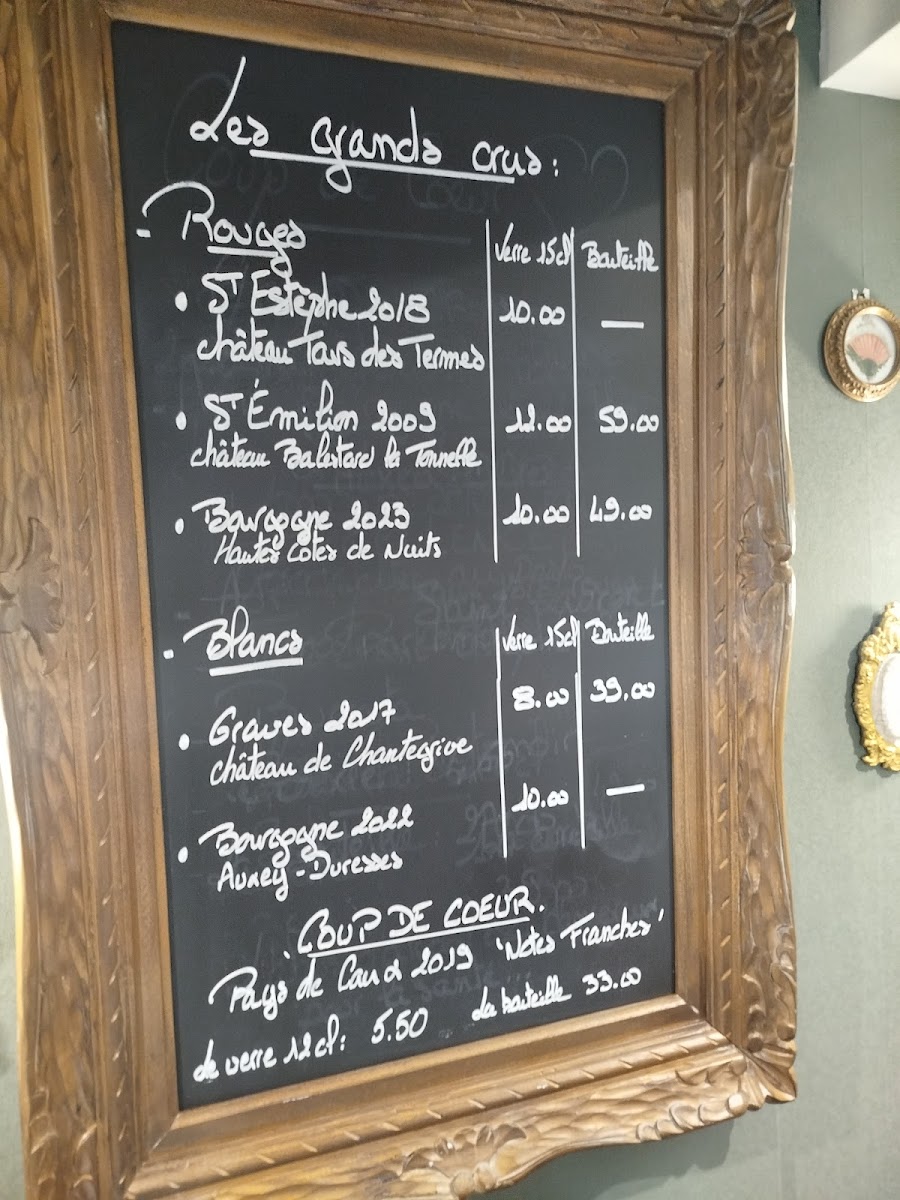 Les grands crus :
- Rouges
Verre 15cl Bouteille
• ST Estèphe 2018 10.00 —
château Tours des Termes
• ST Émilion 2009 12.00 59.00
château Balestard la Tonnelle
• Bourgogne 2023 10.00 49.00
Hautes Cotes de Nuits
- Blancs
Verre 15cl Bouteille
• Graves 2017 8.00 39.00
château de Chantegrive
• Bourgogne 2022 10.00 —
Auxey-Duresses
COUP DE COEUR.
Pays de Caux 2019 'Notes Franches'
Le verre 12cl: 5.50 La bouteille 33.00